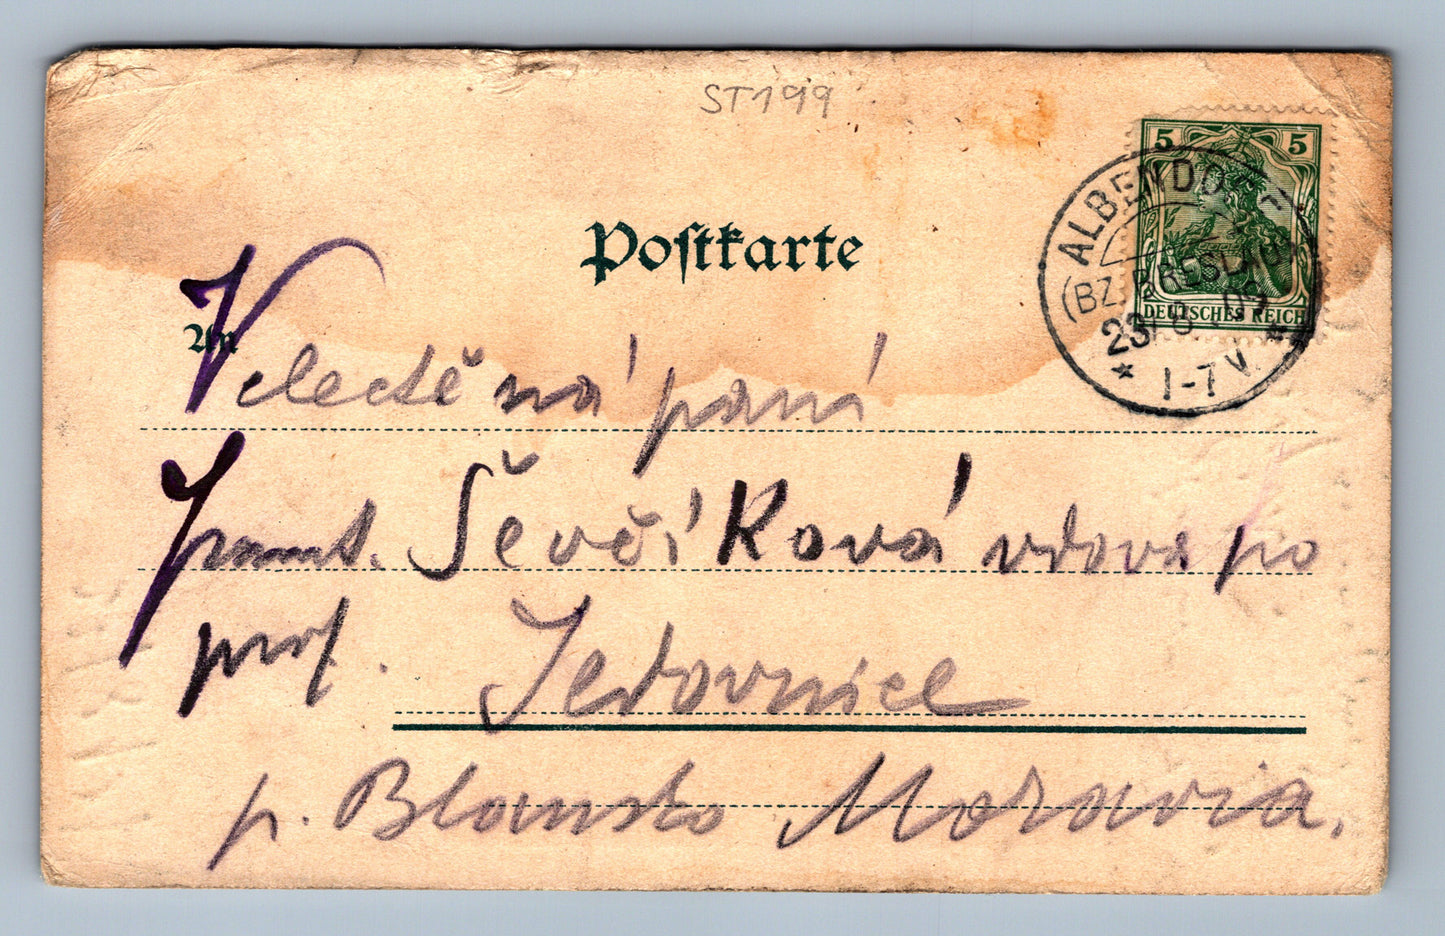 ST199
Postkarte
5 5
DEUTSCHES REICH
ALBENDORF
(BZ. BRESLAU)
23 8 05
1-7 V.
An
Velectěná paní
Frant. Ševčíková vdova po
prof.
Jedovnice
p. Blansko Moravia.